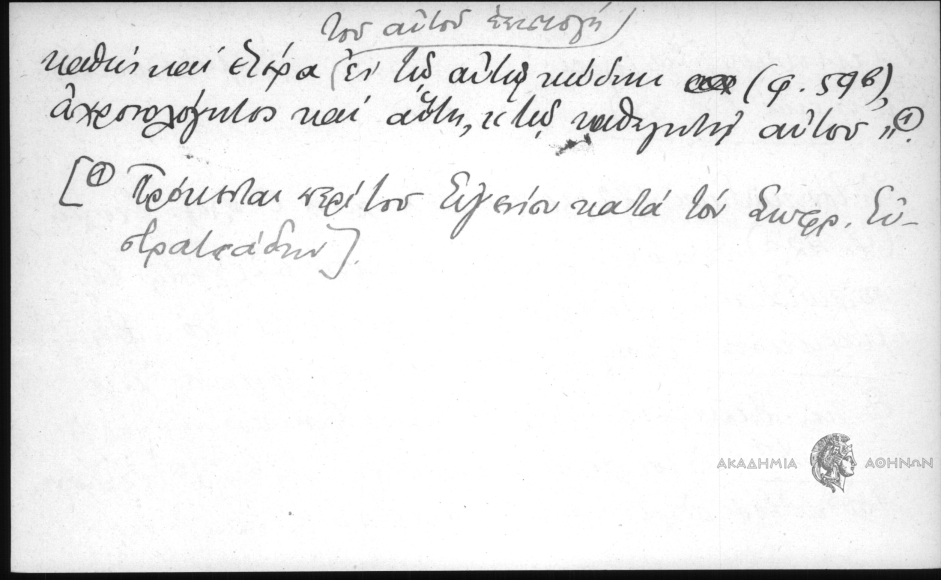 τοῦ αὐτοῦ ἐπιστολή)
καθώς καί ἑτέρα (ἐν τῷ αὐτῷ κώδικι (φ. 59β),
ἀχρονολόγητος καί αὕτη, "τῷ καθηγητῇ αὐτοῦ„①.
[① Πρόκειται περί τοῦ Εὐγενίου κατά τόν Σωφρ. Εὐ-
στρατιάδην].
ΑΚΑΔΗΜΙΑ ΑΘΗΝΩΝ